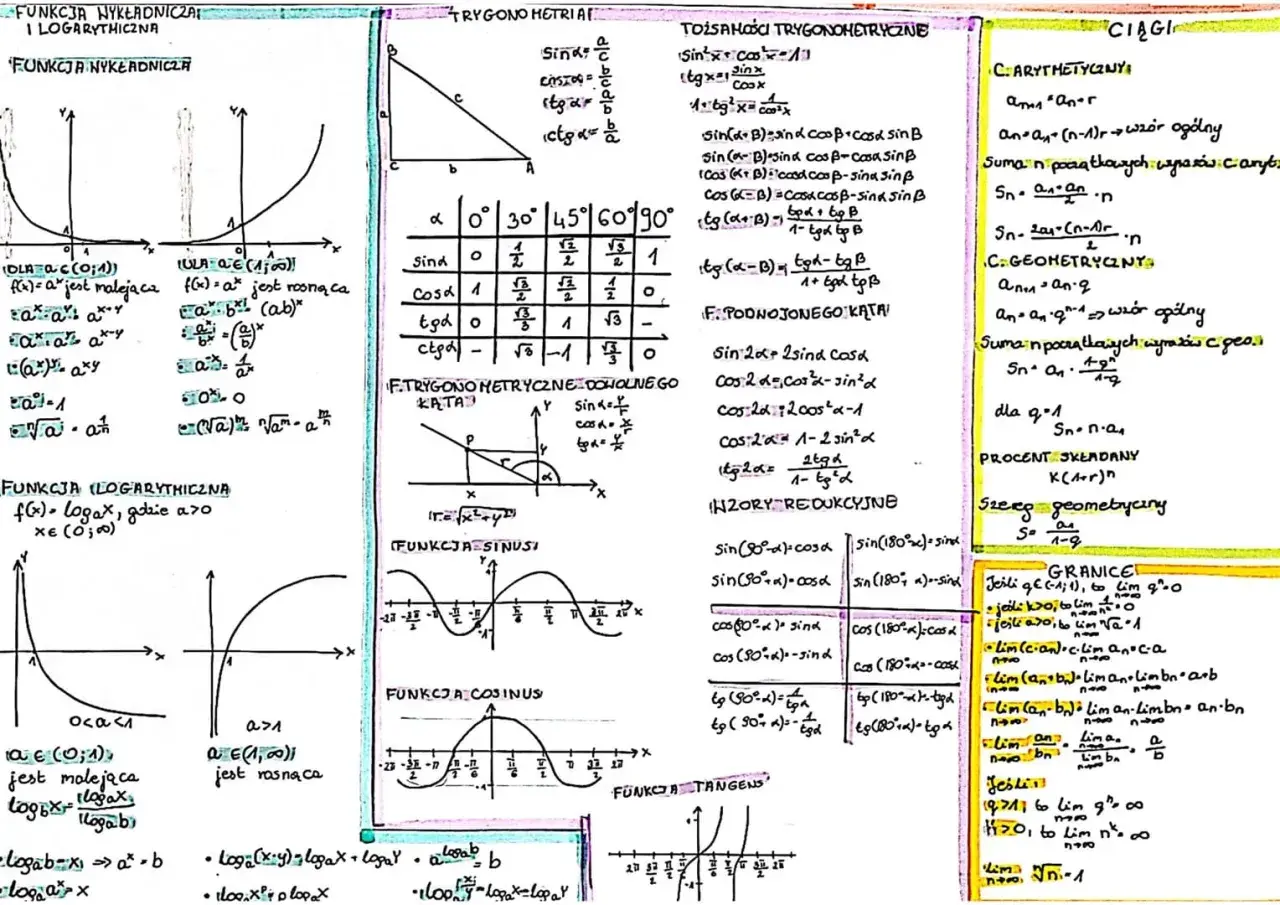 FUNKCJA WYKŁADNICZA
I LOGARYTMICZNA
FUNKCJA WYKŁADNICZA
Y
1
0 1 x
Y
1
0 1 x
DLA a ∈ (0;1)
f(x) = aˣ jest malejąca
DLA a ∈ (1;∞)
f(x) = aˣ jest rosnąca
• aˣ · aʸ = aˣ⁺ʸ
• aˣ : aʸ = aˣ⁻ʸ
• (aˣ)ʸ = aˣʸ
• a⁰ = 1
• ⁿ√a = a^(1/n)
• aˣ · bˣ = (ab)ˣ
• aˣ/bˣ = (a/b)ˣ
• a⁻ˣ = 1/aˣ
• 0ˣ = 0
• (ⁿ√a)ᵐ = ⁿ√aᵐ = a^(m/n)
FUNKCJA LOGARYTMICZNA
f(x) = logₐx, gdzie a>0
x ∈ (0;∞)
y
1 x
0<a<1
1 x
a>1
a ∈ (0;1)
jest malejąca
a ∈ (1,∞)
jest rosnąca
log_b x = logₐx / logₐb
• logₐb = x ⇒ aˣ = b
• logₐaˣ = x
• logₐ(x·y) = logₐx + logₐy
• logₐxᵖ = p logₐx
• a^(logₐb) = b
• logₐ x/y = logₐx - logₐy
TRYGONOMETRIA
B
a c
C b A
sin α = a/c
cos α = b/c
tg α = a/b
ctg α = b/a
α 0° 30° 45° 60° 90°
sinα 0 1/2 √2/2 √3/2 1
cosα 1 √3/2 √2/2 1/2 0
tgα 0 √3/3 1 √3 –
ctgα – √3 1 √3/3 0
F. TRYGONOMETRYCZNE DOWOLNEGO
KĄTA
P Y y r α x x
sin α = y/r
cos α = x/r
tg α = y/x
r = √x²+y²
FUNKCJA SINUS
Y
-2π -3π/2 -π -π/2 -π/6 π/6 π/2 π 3π/2 2π x
-1
FUNKCJA COSINUS
-2π -3π/2 -π π/2 π/6 π/6 π/2 π 3π/2 2π x
-1
FUNKCJA TANGENS
-1
TOŻSAMOŚCI TRYGONOMETRYCZNE
sin²x + cos²x = 1
tg x = sin x / cos x
1 + tg²x = 1/cos²x
sin(α+β) = sinα cosβ + cosα sinβ
sin(α-β) = sinα cosβ - cosα sinβ
cos(α+β) = cosα cosβ - sinα sinβ
cos(α-β) = cosα cosβ - sinα sinβ
tg(α+β) = (tgα + tgβ)/(1 - tgα tgβ)
tg(α-β) = (tgα - tgβ)/(1 + tgα tgβ)
F. PODWOJONEGO KĄTA
sin 2α = 2sinα cosα
cos 2α = cos²α - sin²α
cos 2α = 2cos²α - 1
cos 2α = 1 - 2 sin²α
tg 2α = 2tgα/(1 - tg²α)
WZORY REDUKCYJNE
sin(90°-α) = cosα sin(180°-α) = sinα
sin(90°+α) = cosα sin(180°+α) = -sinα
cos(90°-α) = sinα cos(180°-α) = cosα
cos(90°+α) = -sinα cos(180°+α) = -cosα
tg(90°-α) = 1/tgα tg(180°-α) = -tgα
tg(90°+α) = -1/tgα tg(180°+α) = tgα
CIĄGI
C. ARYTMETYCZNY
aₙ₊₁ = aₙ + r
aₙ = a₁ + (n-1)r → wzór ogólny
Suma n początkowych wyrazów c. aryt.
Sn = (a₁+aₙ)/2 · n
Sn = (2a₁+(n-1)r)/2 · n
C. GEOMETRYCZNY
aₙ₊₁ = aₙ · q
aₙ = a₁ · qⁿ⁻¹ => wzór ogólny
Suma n początkowych wyrazów c geo.
Sn = a₁ · (1-qⁿ)/(1-q)
dla q=1
Sn = n · a₁
PROCENT SKŁADANY
K(1+r)ⁿ
Szereg geometryczny
S = a₁/(1-q)
GRANICE
Jeśli q ∈ (-1;1), to lim n→∞ qⁿ = 0
• jeśli k>0, to lim n→∞ 1/nᵏ = 0
• jeśli a>0, to lim n→∞ ⁿ√a = 1
• lim n→∞ (c·aₙ) = c · lim n→∞ aₙ = c·a
• lim n→∞ (aₙ+bₙ) = lim n→∞ aₙ + lim n→∞ bₙ = a+b
• lim n→∞ (aₙ·bₙ) = lim n→∞ aₙ · lim n→∞ bₙ = an·bn
• lim n→∞ aₙ/bₙ = lim n→∞ aₙ / lim n→∞ bₙ = a/b
Jeśli
q>1, to lim n→∞ qⁿ = ∞
k>0, to lim n→∞ nᵏ = ∞
lim n→∞ ⁿ√n = 1